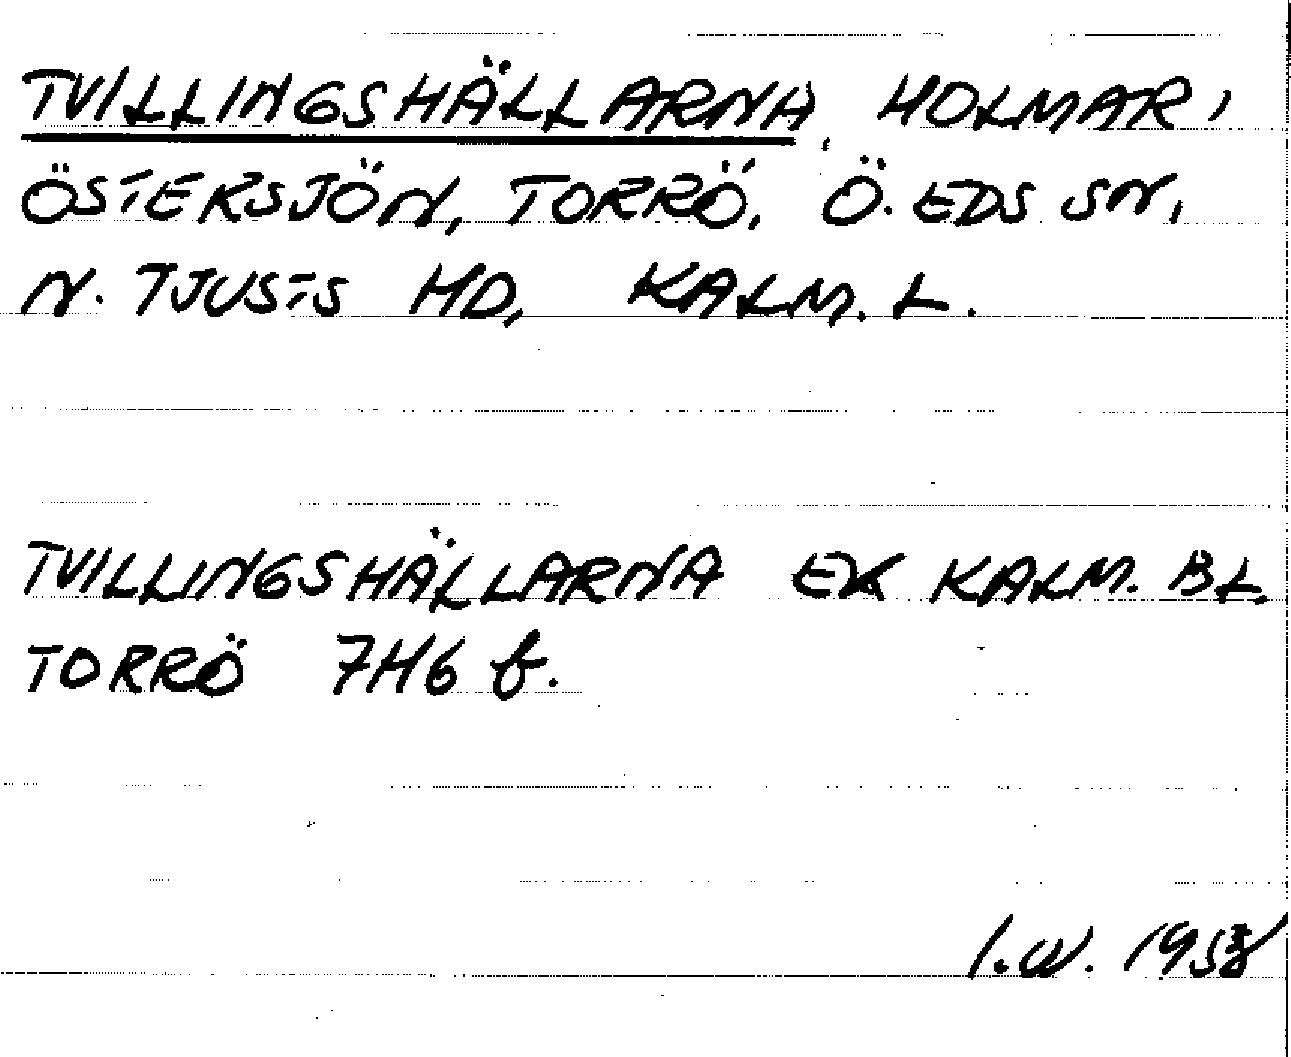 TVILLINGSHÄLLARNA, HOLMAR,
ÖSTERSJÖN, TORRÖ, Ö. EDS SN,
N. TJUSTS HD, KALM. L.
TVILLINGSHÄLLARNA EK KALM. BL.
TORRÖ 7H6 b.
I.W.